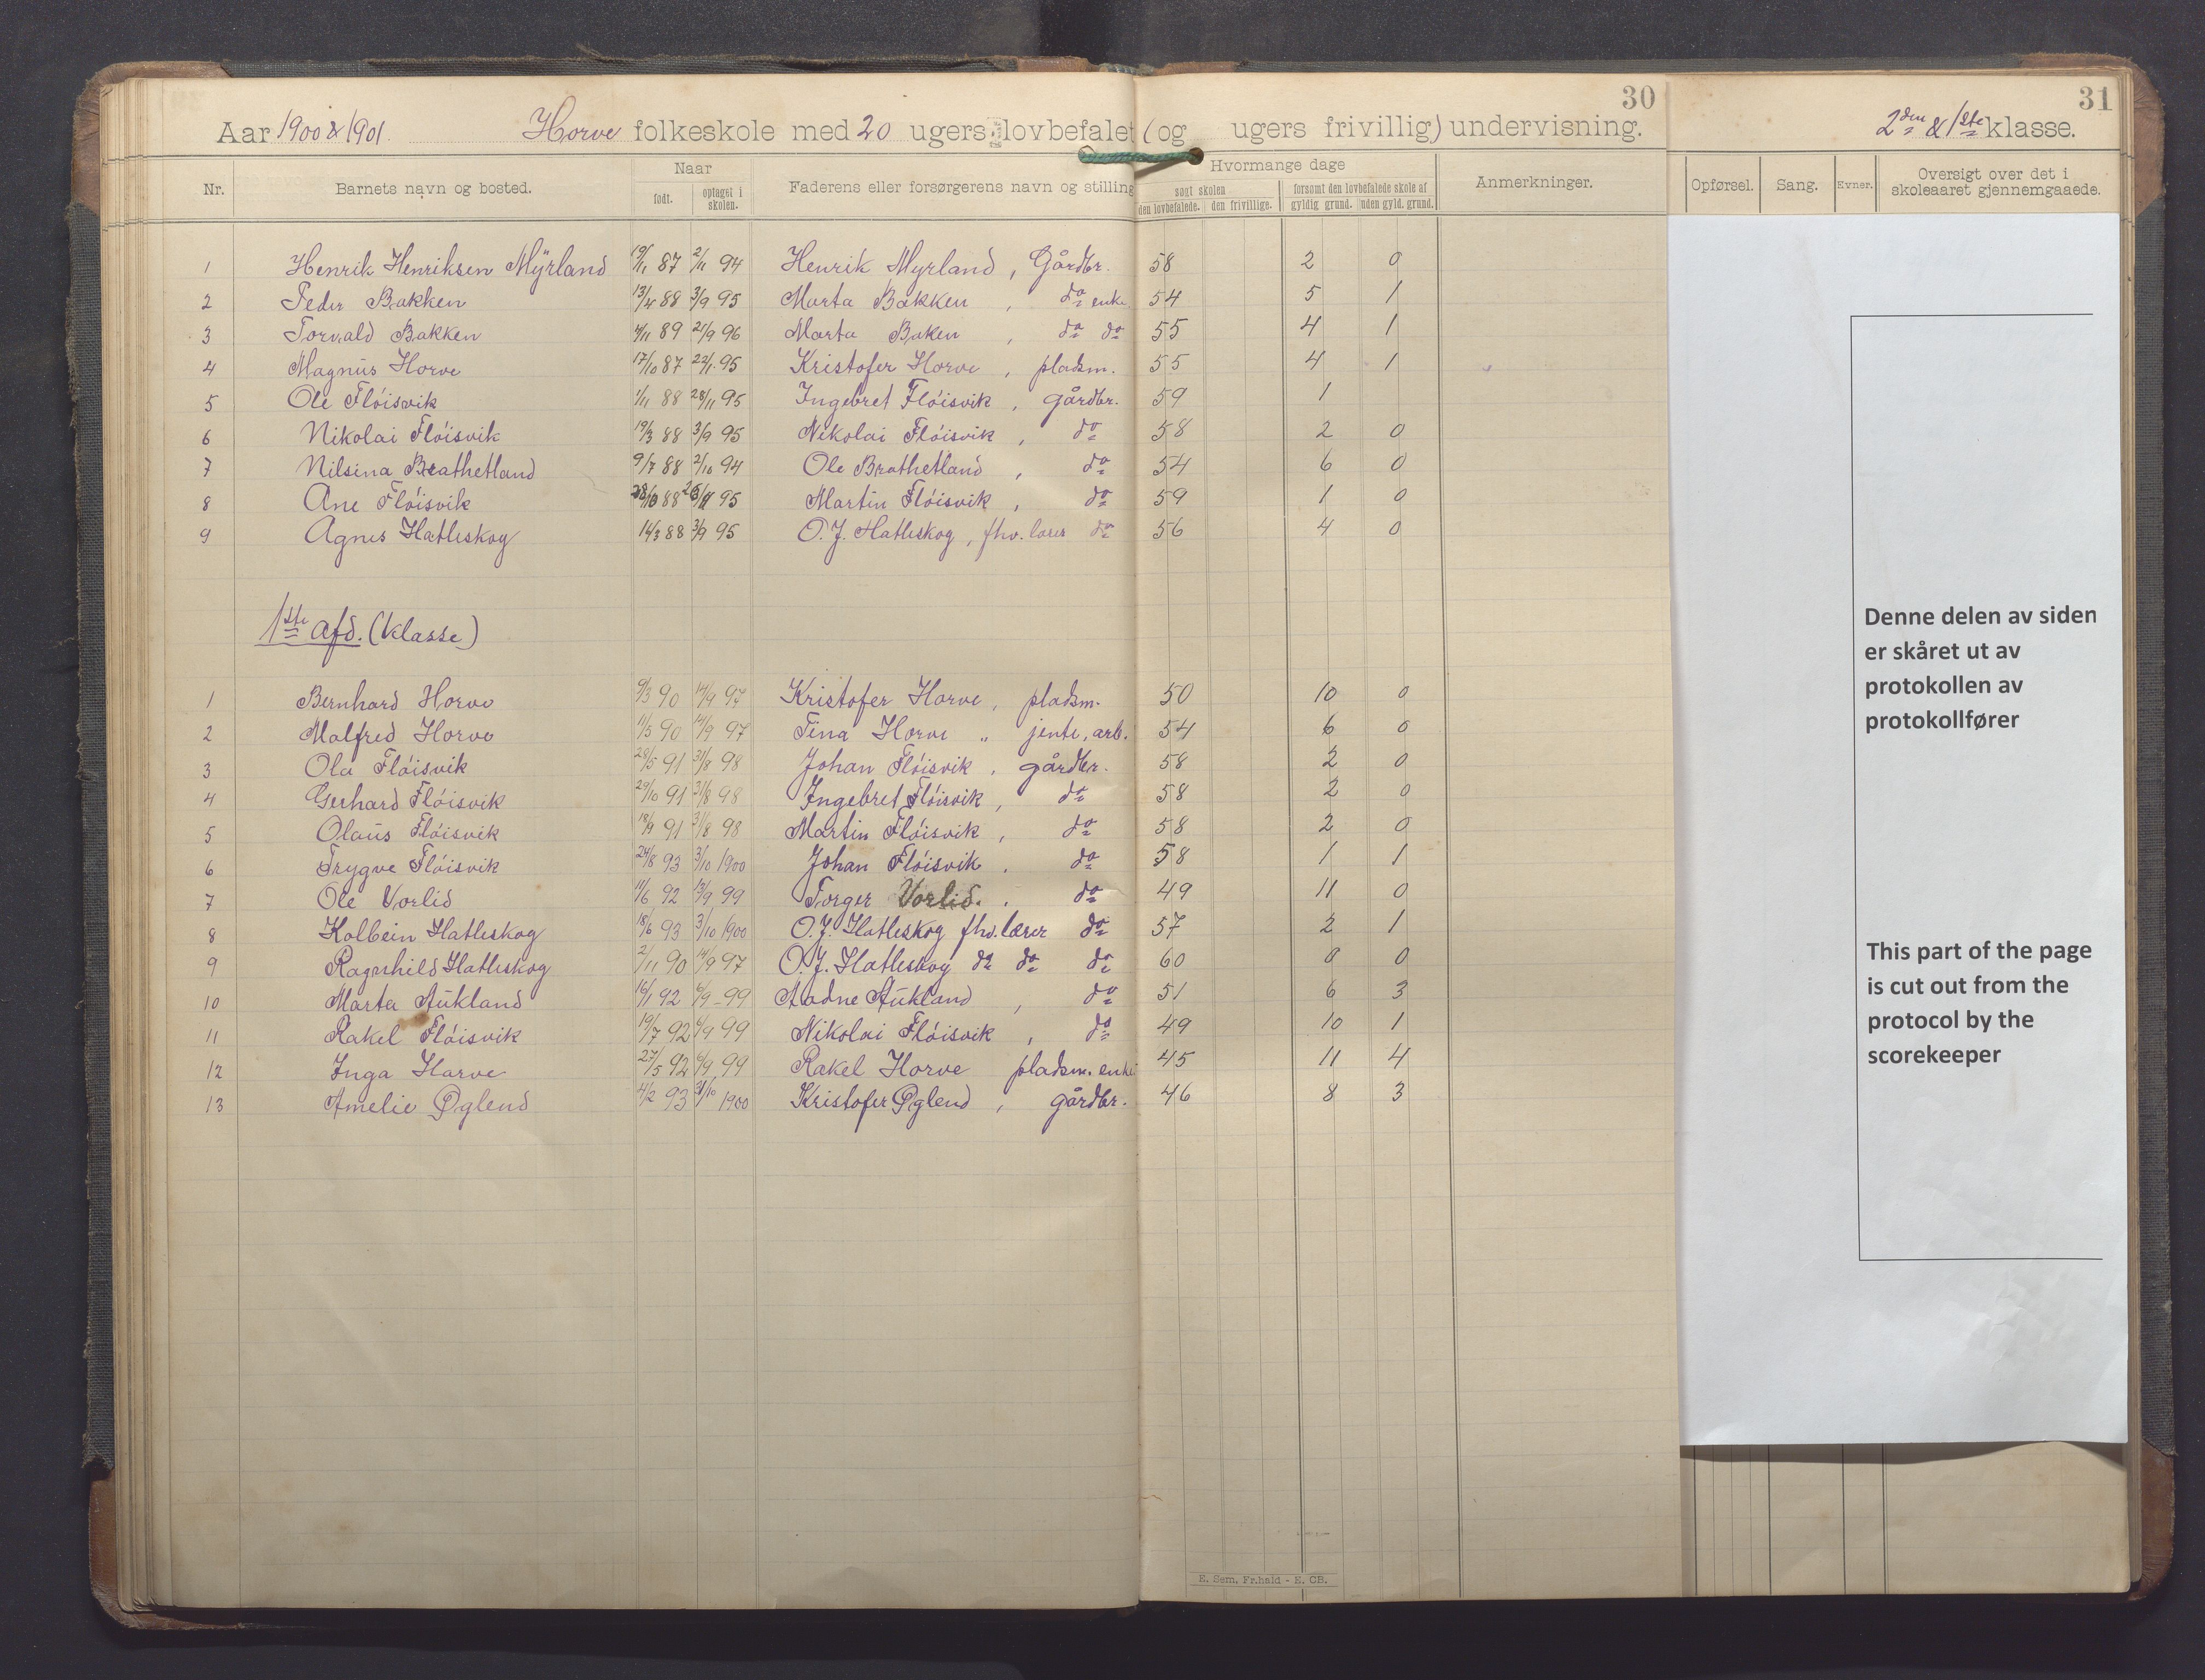 30
31
Aar 1900 & 1901. Horve folkeskole med 20 ugers lovbefalet (og ugers frivillig) undervisning. 2den & 1ste klasse.
Nr. Barnets navn og bosted. Naar Faderens eller forsørgerens navn og stilling Hvormange dage Anmerkninger. Opførsel. Sang. Evner. Oversigt over det i skoleaaret gjennemgaaede.
født. optaget i skolen. søgt skolen forsømt den lovbefalede skole af
den lovbefalede. den frivillige. gyldig grund. uden gyld. grund.
1 Henrik Henriksen Myrland 19/11 87 2/11 94 Henrik Myrland, Gårdbr. 58 2 0
2 Peder Bakken 13/4 88 3/9 95 Marta Bakken, do enke 54 5 1
3 Torvald Bakken 4/11 89 21/9 96 Marta Baken, do do 55 4 1
4 Magnus Horve 17/10 87 22/1 95 Kristofer Horve, pladsm. 55 4 1
5 Ole Fløisvik 1/11 88 28/11 95 Ingebret Fløisvik, gårdbr. 59 1
6 Nikolai Fløisvik 19/3 88 3/9 95 Nikolai Fløisvik, do 58 2 0
7 Nilsina Brathetland 9/7 88 2/10 94 Ole Brathetland, do 54 6 0
8 Ane Fløisvik 88 95 Martin Fløisvik, do 59 1 0
9 Agnes Hatleskog 14/3 88 3/9 95 O. J. Hatleskog, fhv. lærer do 56 4 0
1ste afd. (klasse)
1 Bernhard Horve 9/3 90 14/9 97 Kristofer Horve, pladsm. 50 10 0
2 Malfred Horve 11/5 90 14/9 97 Tina Horve " jente, arb. 54 6 0
3 Ola Fløisvik 28/5 91 31/8 98 Johan Fløisvik, gårdbr. 58 2 0
4 Gerhard Fløisvik 29/10 91 31/8 98 Ingebret Fløisvik, do 58 2 0
5 Olaus Fløisvik 18/9 91 31/8 98 Martin Fløisvik, do 58 2 0
6 Trygve Fløisvik 24/8 93 3/10 1900 Johan Fløisvik, do 58 1 1
7 Ole Vorlid 11/6 92 13/9 99 Torger Vorlid. do 49 11 0
8 Kolbein Hatleskog 18/6 93 3/10 1900 O. J. Hatleskog fhv. lærer do 57 2 1
9 Ragnhild Hatleskog 2/11 90 14/9 97 O. J. Hatleskog do do do 60 0 0
10 Marta Aukland 16/1 92 6/9 - 99 Aadne Aukland, do 51 6 3
11 Rakel Fløisvik 19/7 92 6/9 99 Nikolai Fløisvik, do 49 10 1
12 Inga Horve 27/5 92 6/9 99 Rakel Horve pladsm. enke 45 11 4
13 Amelie Øglend 4/2 93 31/10 1900 Kristofer Øglend, gårdbr. 46 8 3
Denne delen av siden
er skåret ut av
protokollen av
protokollfører
This part of the page
is cut out from the
protocol by the
scorekeeper
E. Sem, Fr.hald - E. CB.